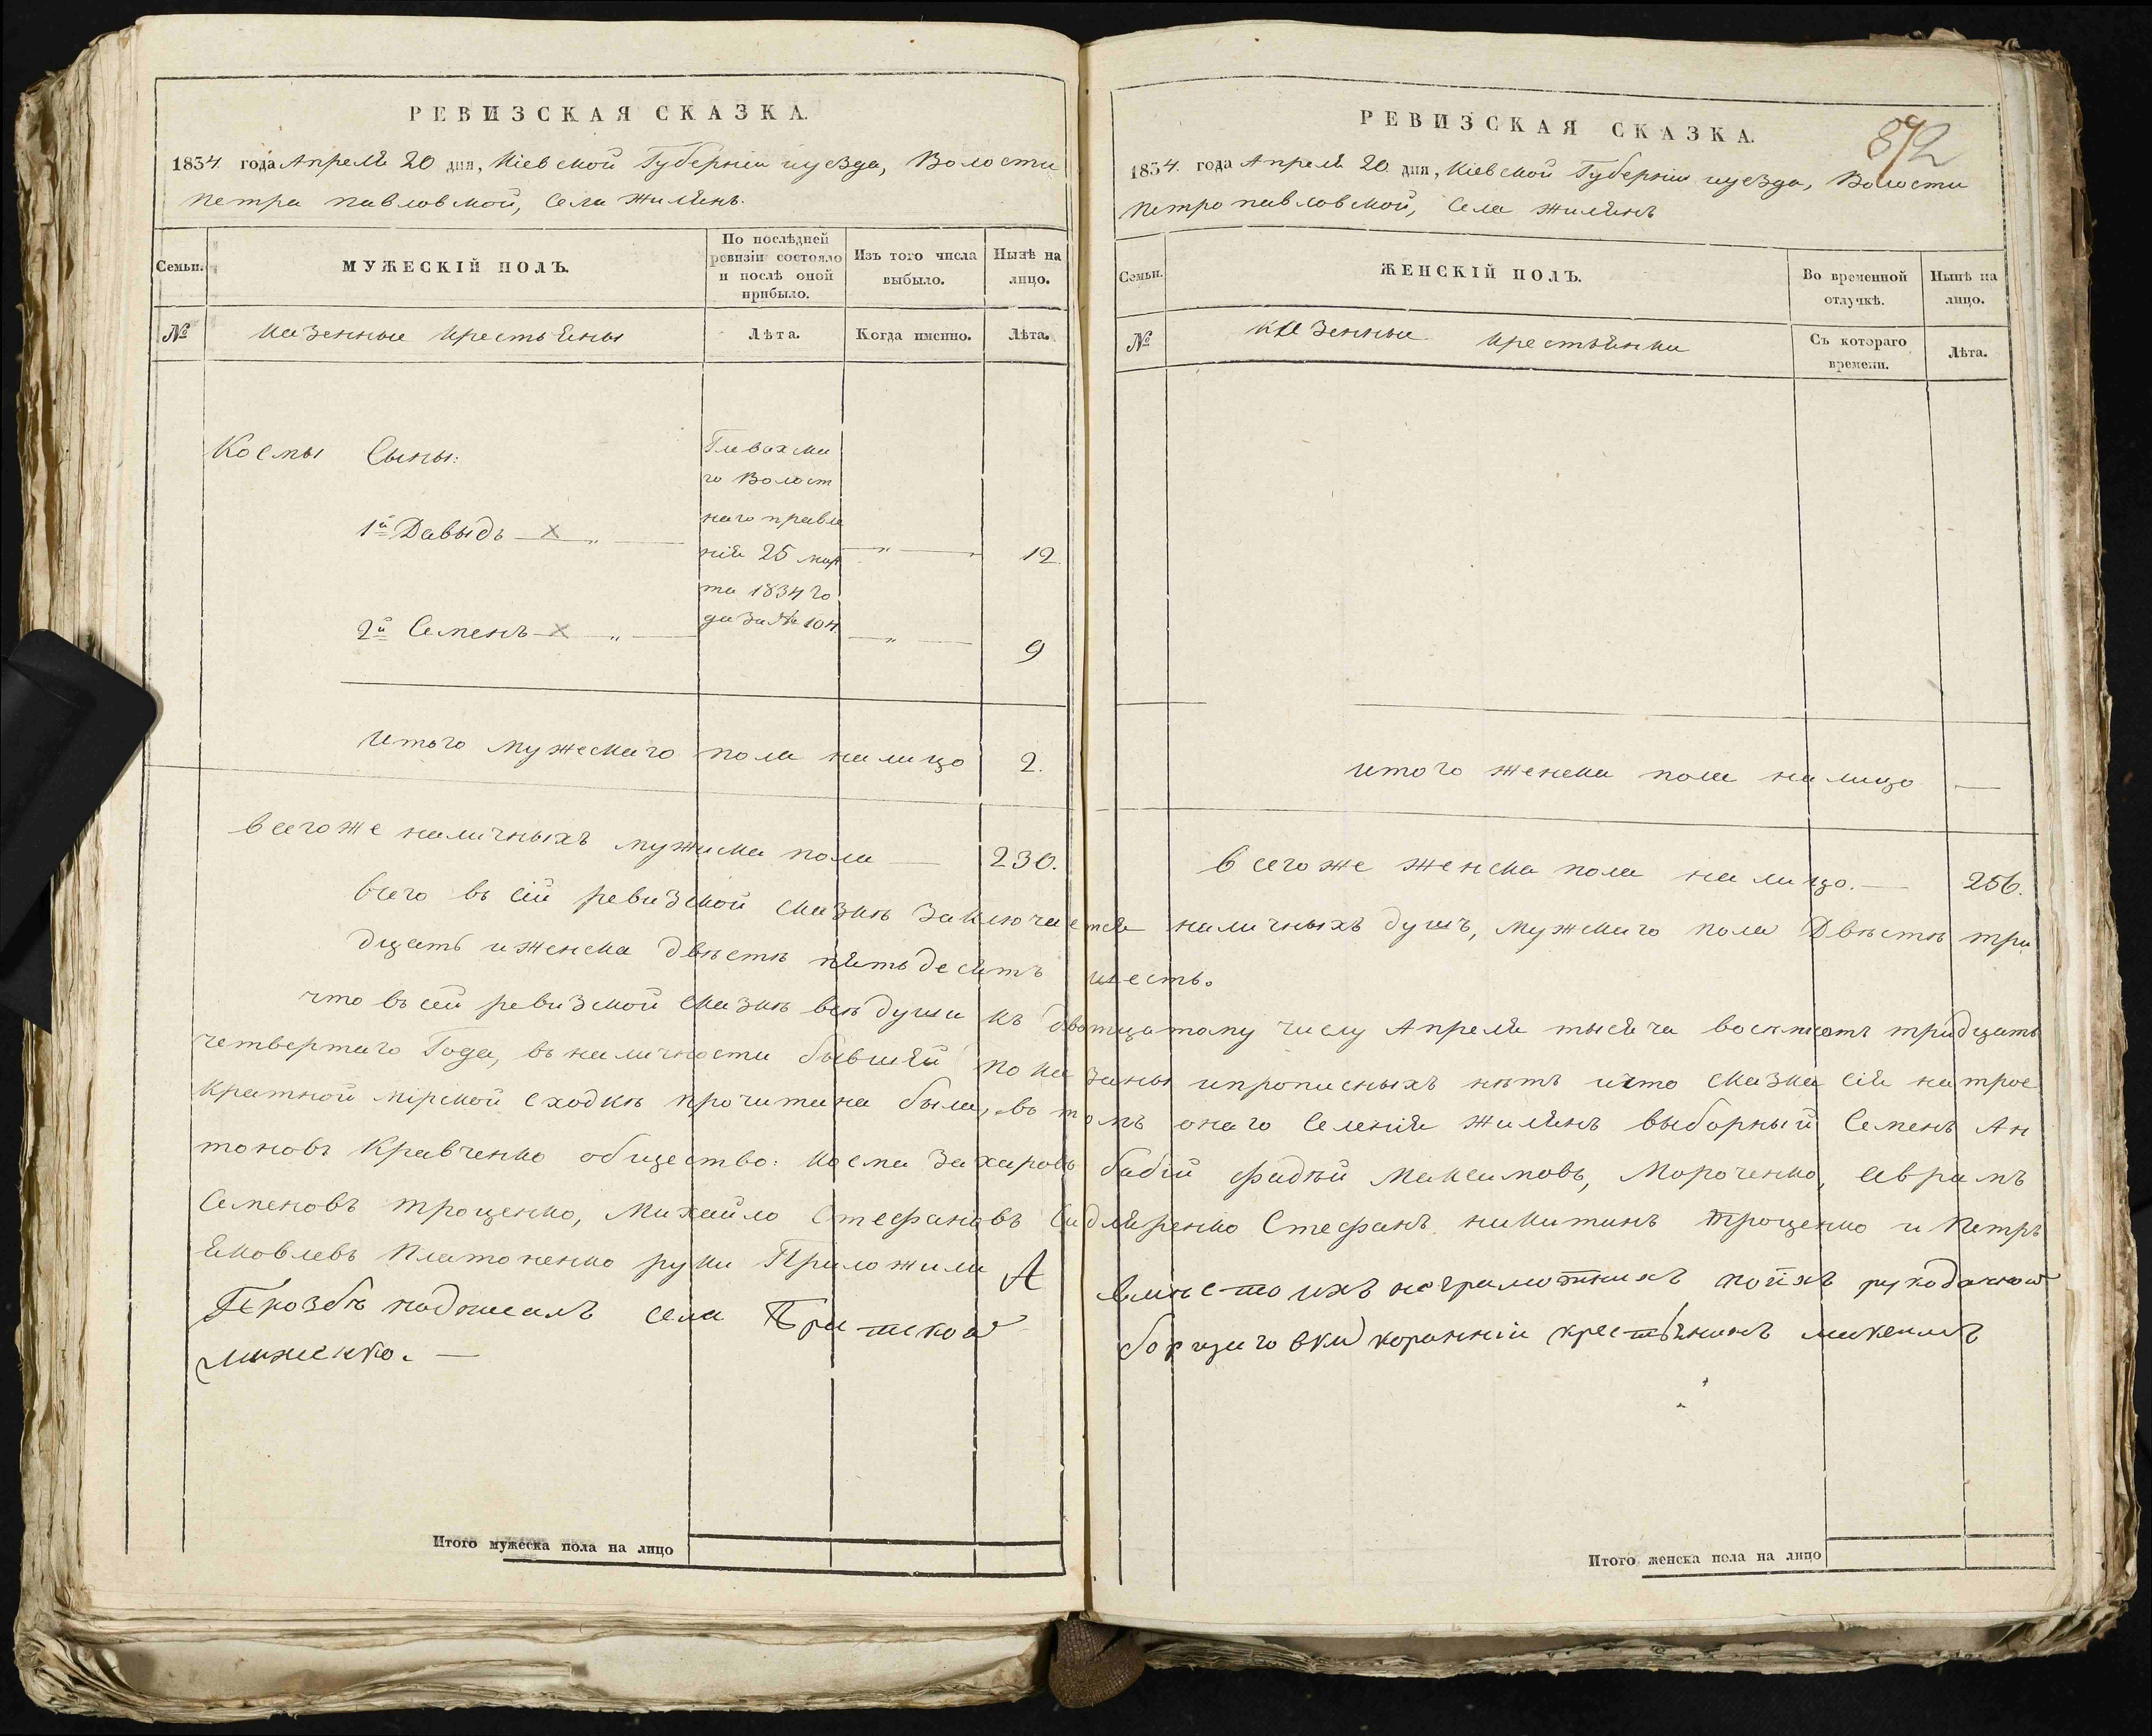 РЕВИЗСКАЯ СКАЗКА.
1834 года Апреля 20 дня, Кіевской Губерніи иуезда, Волости
Петра павловской, Села жилянъ.
Семьи.
МУЖЕСКІЙ ПОЛЪ.
По послѣдней ревизіи состояло и послѣ оной прибыло.
Изъ того числа выбыло.
Нынѣ на лицо.
№
казенныи крестьяны
Лѣта.
Когда именно.
Лѣта.
Космы Сыны:
Глевахска
го Волост
наго правле
1й Давыдъ 12.
нія 25 мар
та 1834 го
да за № 104
2й Семенъ 9
итого мужескаго пола налицо 2.
всегоже наличныхъ мужиска пола — 230.
РЕВИЗСКАЯ СКАЗКА.
872
1834. года Апреля 20 дня, Кіевской Губерніи иуезда, Волости
Петропавловской, Села жилянъ
Семьи.
ЖЕНСКІЙ ПОЛЪ.
Во временной отлучкѣ.
Нынѣ на лицо.
№
казенныи крестьянки
Съ котораго времени.
Лѣта.
итого женска пола налицо —
всегоже женска пола налицо. — 256.
всего въ сій ревизской сказкѣ заключается наличныхъ душъ, мужскаго пола Двѣстѣ три
дцать иженска двѣстѣ пятьдесятъ шесть.
что въ сей ревизской сказкѣ всѣ души къ двотцатому числу Апреля тысяча восемсотъ тридцать
четвертаго Года, въ наличности бывшяй показаны ипрописныхъ нѣтъ ичто сказка сія натрое
кратной мірской сходкѣ прочитана была, въ томъ онаго Селенія жилянъ выборный Семенъ Ан
тоновъ Кравченко общество: Косма Захаровъ бабій Фадѣй Максимовъ, Мороченко, Аврамъ
Семеновъ троценко, Михайло Стефановъ Сидляренко Стефанъ никитинъ Троценко и Петръ
Яковлевъ Платоненко руки Приложили А вместо ихъ неграмотнихъ поихъ рукоданой
Прозбѣ подписалъ села борщаговки коронній крестьянинъ
Итого мужеска пола на лицо
Итого женска пола на лицо